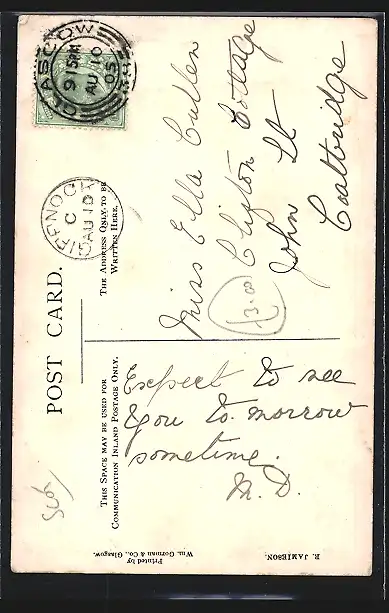 POST CARD.
THE ADDRESS ONLY TO BE
WRITTEN HERE.
THIS SPACE MAY BE USED FOR
COMMUNICATION INLAND POSTAGE ONLY.
GLASGOW
915PM
AU 10
05
GIFFNOCK
C
AU 10
Miss Ella Cullen
Clifton Cottage
John St
Coatbridge
Expect to see
you to-morrow
sometime.
M. D.
Printed by
Wm. Gorman & Co., Glasgow.
R. JAMIESON.